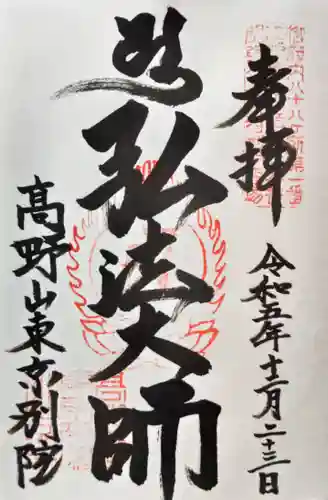 御府内八十八ヶ所第一番
奉拝
令和五年十二月二十三日
弘法大師
高野山東京別院